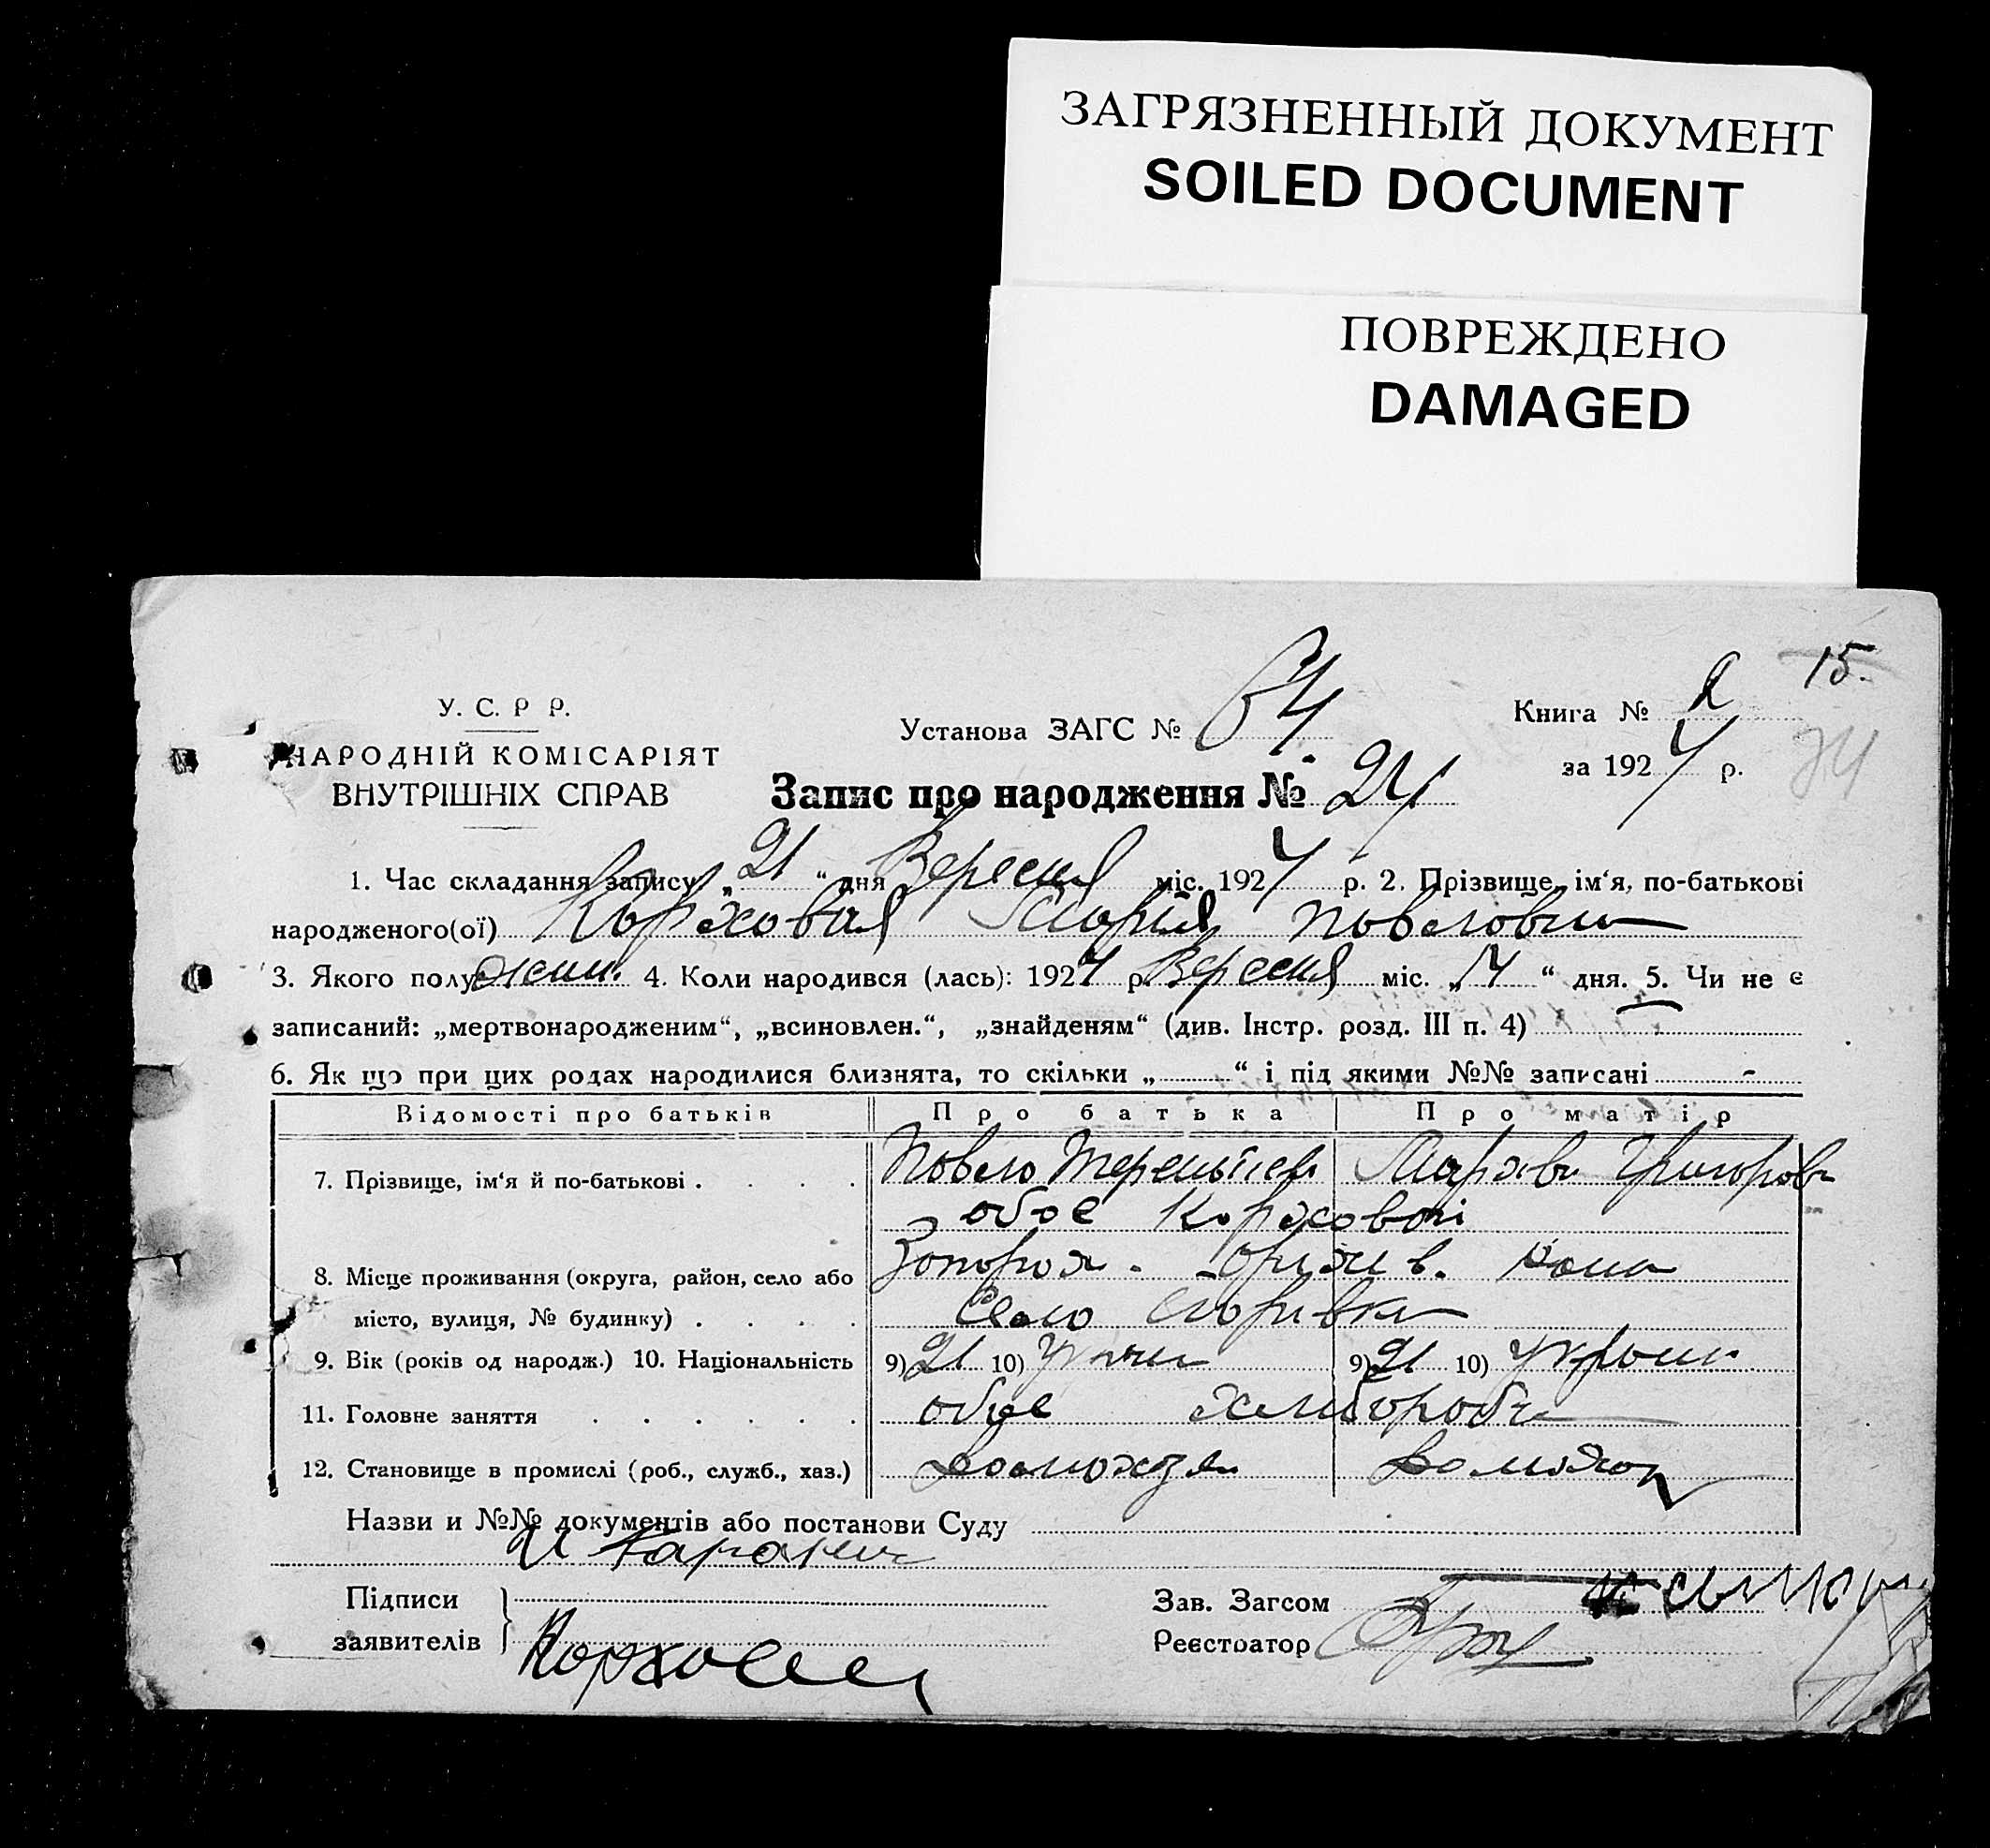 ЗАГРЯЗНЕННЫЙ ДОКУМЕНТ
SOILED DOCUMENT
ПОВРЕЖДЕНО
DAMAGED
15.
У. С. Р Р.
НАРОДНІЙ КОМІСАРІЯТ
ВНУТРІШНІХ СПРАВ
Установа ЗАГС №
Книга № 2
за 1924 р.
Запис про народження № 24
1. Час складання запису „21“ дня Вересня міс. 1924 р. 2. Прізвище, ім‘я, по-батькові
народженого(ої) Коржовая Марія Повловна
3. Якого полу жін. 4. Коли народився (лась): 1924 р. Вересня міс. „14“ дня. 5. Чи не є
записаний: „мертвонародженим“, „всиновлен.“, „знайденям“ (див. Інстр. розд. III п. 4)
6. Як що при цих родах народилися близнята, то скільки „ “ і під якими №№ записані -
Відомості про батьків Про батька Про матір
7. Прізвище, ім‘я й по-батькові . . . . Повло Терентіев Мархва Григоров
обое Коржовоі
8. Місце проживання (округа, район, село або Запорож.
місто, вулиця, № будинку) . . . . Село
9. Вік (років од народж.) 10. Національність 9) 21 10) 9) 21 10) Украин
11. Головне заняття . . . . . . обое хлібороби
12. Становище в промислі (роб., служб., хаз.) домохоз
Назви и №№ документів або постанови Суду
Підписи
заявителів
Зав. Загсом
Реєстратор